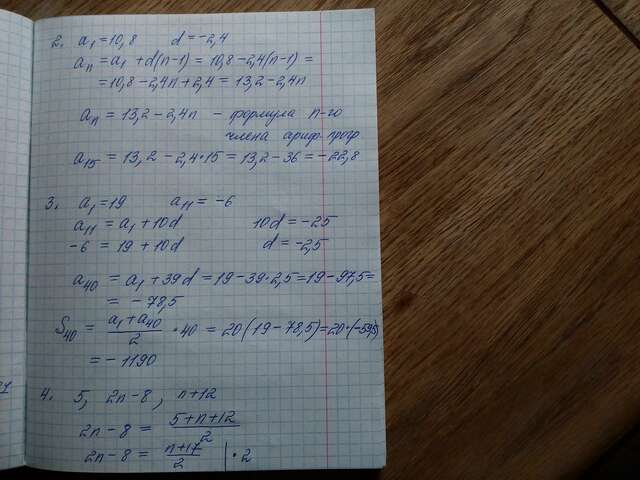 2. a₁ = 10,8 d = -2,4
aₙ = a₁ + d(n-1) = 10,8 - 2,4(n-1) =
= 10,8 - 2,4n + 2,4 = 13,2 - 2,4n
aₙ = 13,2 - 2,4n - формула n-го
члена ариф. прогр
a₁₅ = 13,2 - 2,4·15 = 13,2 - 36 = -22,8
3. a₁ = 19 a₁₁ = -6
a₁₁ = a₁ + 10d 10d = -25
-6 = 19 + 10d d = -2,5
a₄₀ = a₁ + 39d = 19 - 39·2,5 = 19 - 97,5 =
= -78,5
S₄₀ = (a₁ + a₄₀)/2 · 40 = 20(19 - 78,5) = 20·(-59,5)
= -1190
4. 5, 2n-8, n+12
2n - 8 = (5+n+12)/2
2n - 8 = (n+17)/2 | · 2